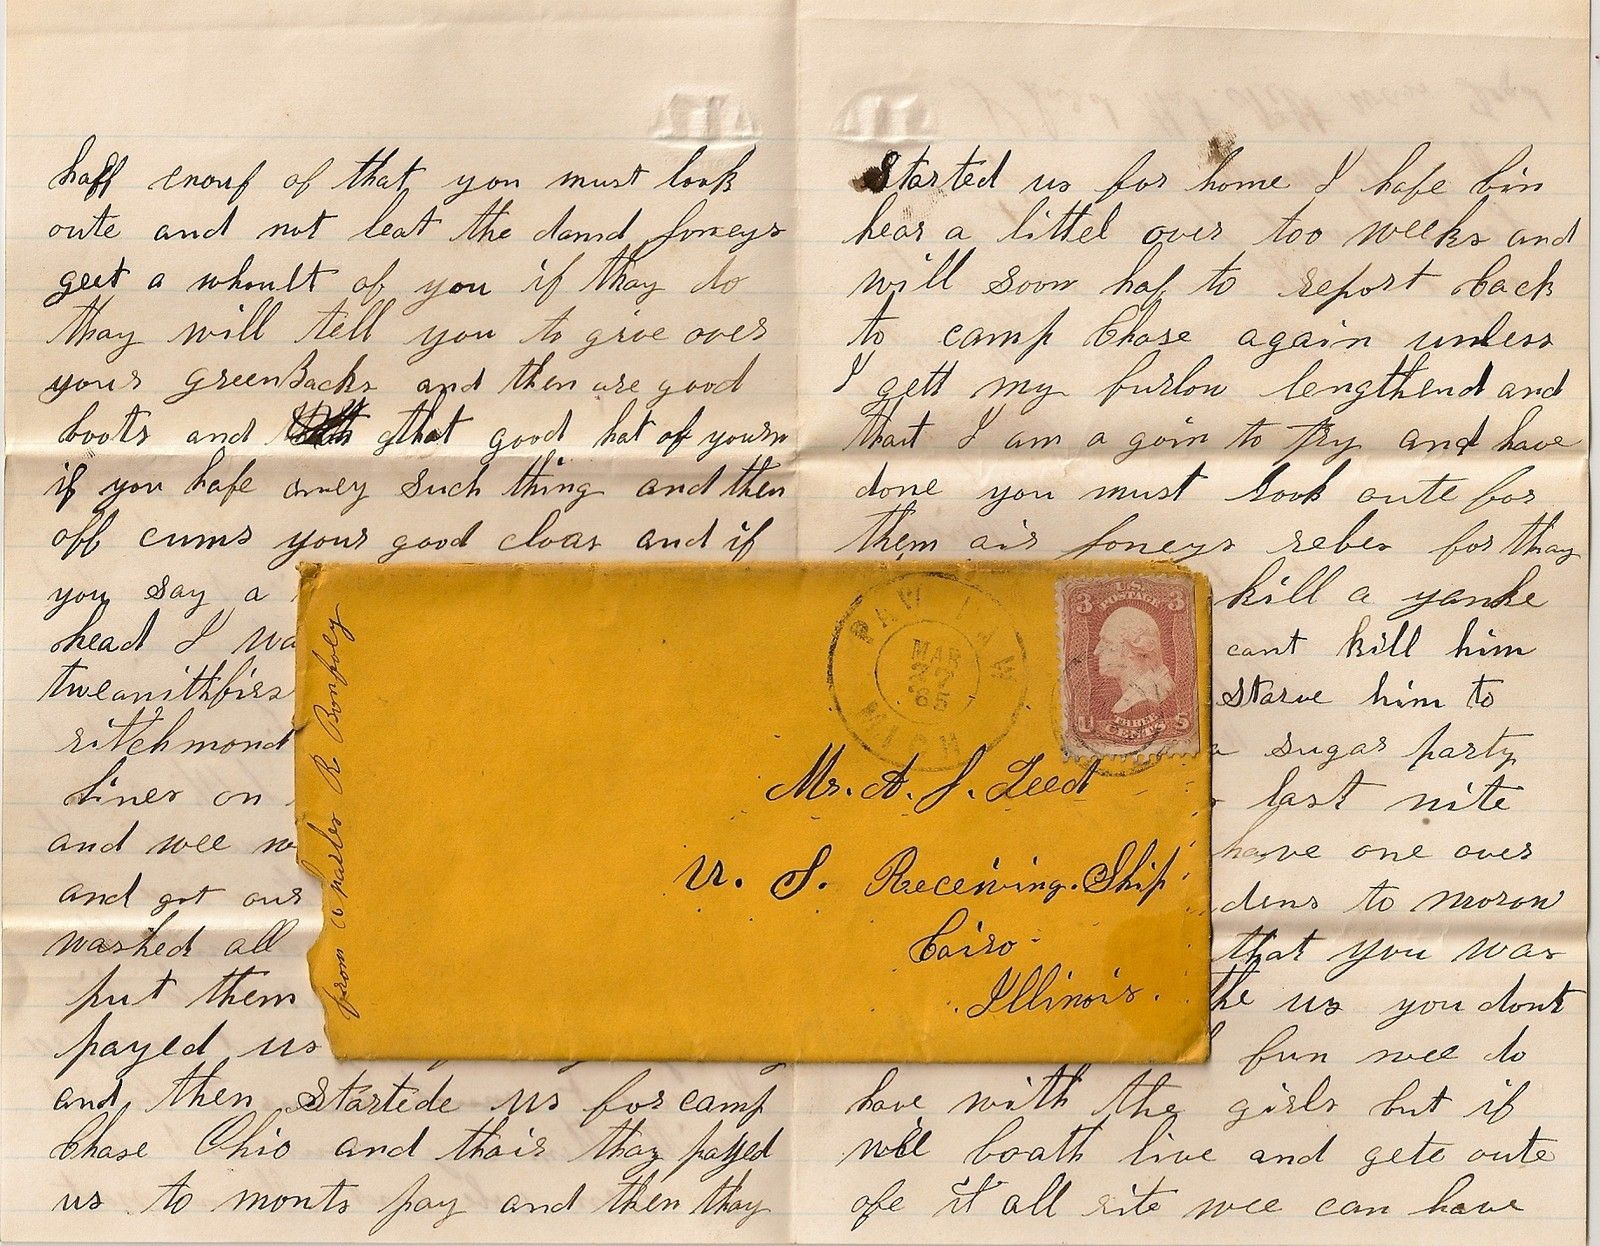 haff enouf of that you must look
oute and not leat the damd Joneys
geet a whoult of you if thay do
thay will tell you to give over
your GreenBacks and then are good
boots and that good hat of yourn
if you hafe aney such thing and then
off cums your good cloas and if
you say a
head I wa
tweanithfirs
ritchmond
liner on
and wee w
and got our
washed all
put them
payed us
and then startede us for camp
Chase Ohio and thair thay payed
us to monts pay and then thay
started us for home I hafe bin
hear a littel over too weeks and
will soon haf to report back
to camp Chase again unless
I gett my furlow lengthend and
that I am a goin to try and have
done you must look oute for
them air Joneys rebes for thay
kill a yanke
cant kill him
starve him to
a sugar party
last nite
have one over
dens to morow
that you was
the us you dont
fun wee do
have with the girls but if
wee boath live and gete oute
ofe it all rite wee can have
from Charles R Bonfoey
PAW PAW
MAR
'65
MICH
U.S. POSTAGE
3 3
U S
THREE CENTS
Mr. A. J. Leed
U. S. Receiving Ship
Cairo
Illinois.